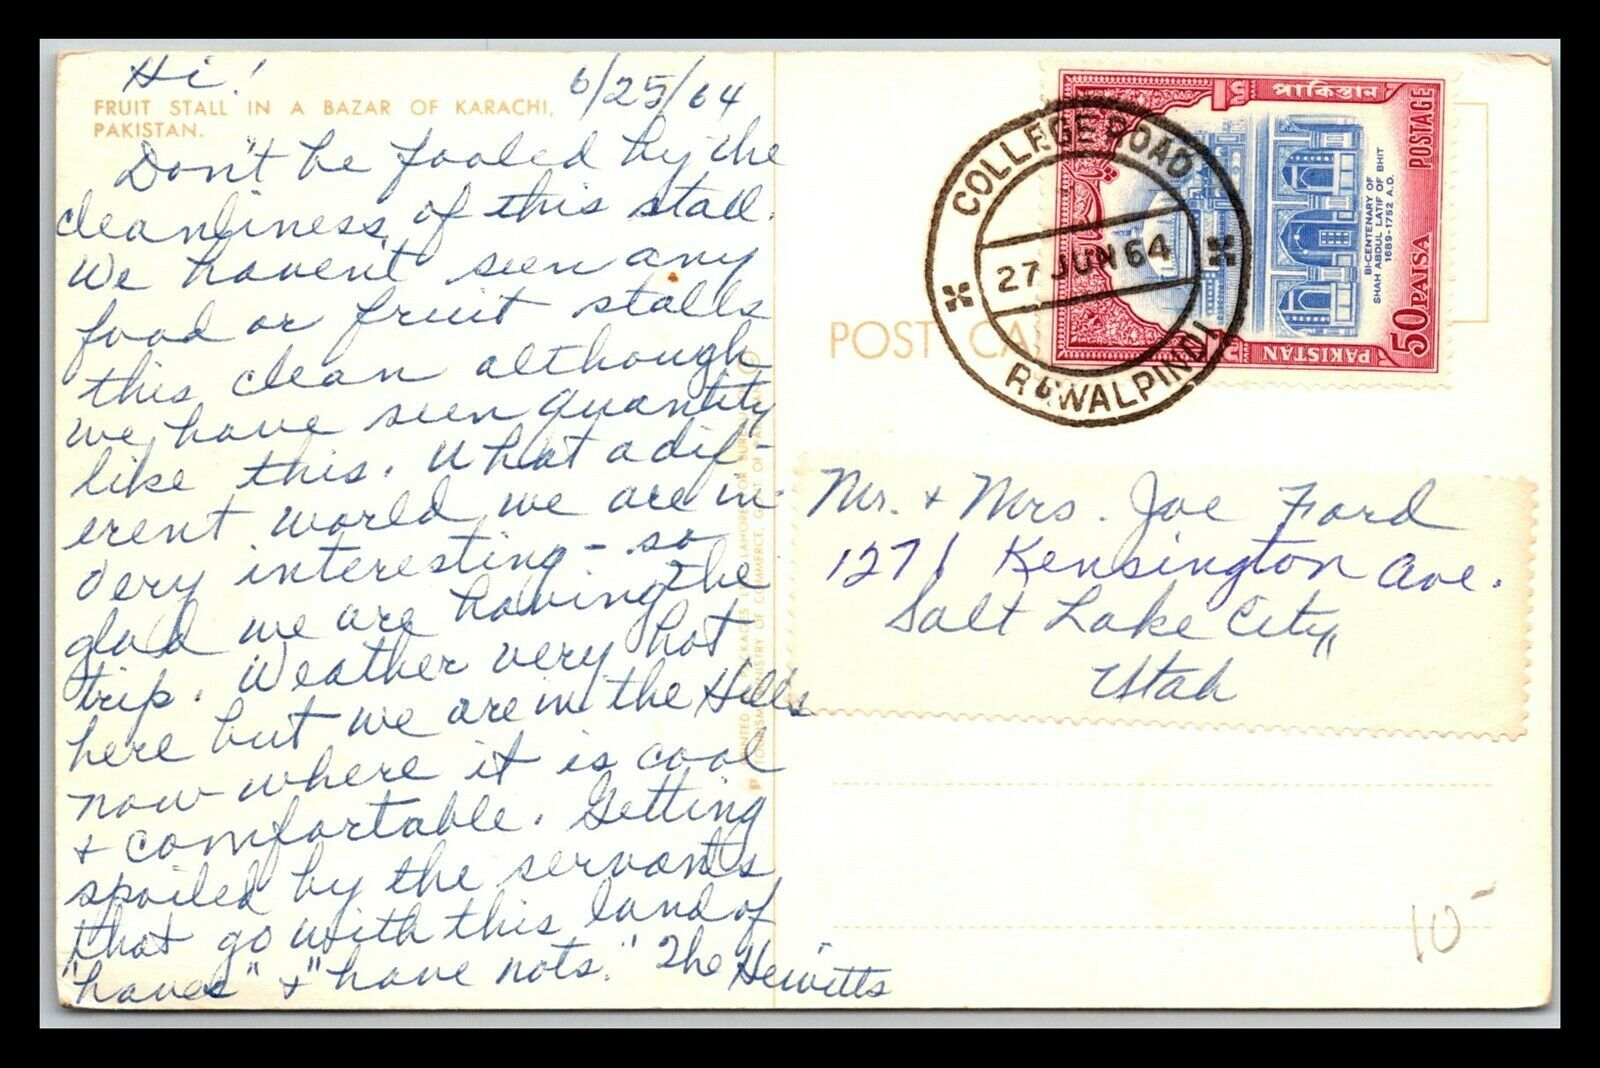 Hi!
6/25/64
FRUIT STALL IN A BAZAR OF KARACHI,
PAKISTAN.
Don't be fooled by the
cleanliness of this stall.
We haven't seen any
food or fruit stalls
this clean although
we have seen quantity
like this. What a dif-
erent world we are in.
Very interesting - so
glad we are having the
trip. Weather very hot
here but we are in the Hills
now where it is cool
& comfortable. Getting
spoiled by the servants
that go with this land of
"haves" & "have nots." The Hewitts
COLLEGE ROAD
27 JUN 64
RAWALPINDI
পাকিস্তান
POSTAGE
BI-CENTENARY OF
SHAH ABDUL LATIF OF BHIT
1689-1752 A.D.
50 PAISA
PAKISTAN
POST CA
Mr. & Mrs. Joe Ford
1271 Kensington Ave.
Salt Lake City,
Utah
10-